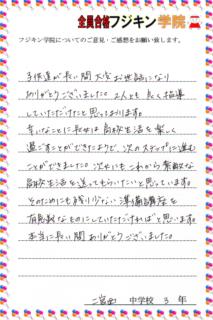 全員合格フジキン学院
フジキン学院についてのご意見・ご感想をお願い致します。
子供達が長い間大変お世話になり
ありがとうございました。2人とも良く指導
していただけたと思っております。
幸いなことに長女は高校生活を楽しく
過ごすことができたようで、次のステップに進む
ことができました。次女にもこれから素敵な
高校生活を送ってもらいたいと思っています。
そのためにも残り少ない準備講座を
有意義なものにしていただければと思います。
本当に長い間ありがとうございました。
二宮西 中学校 3 年